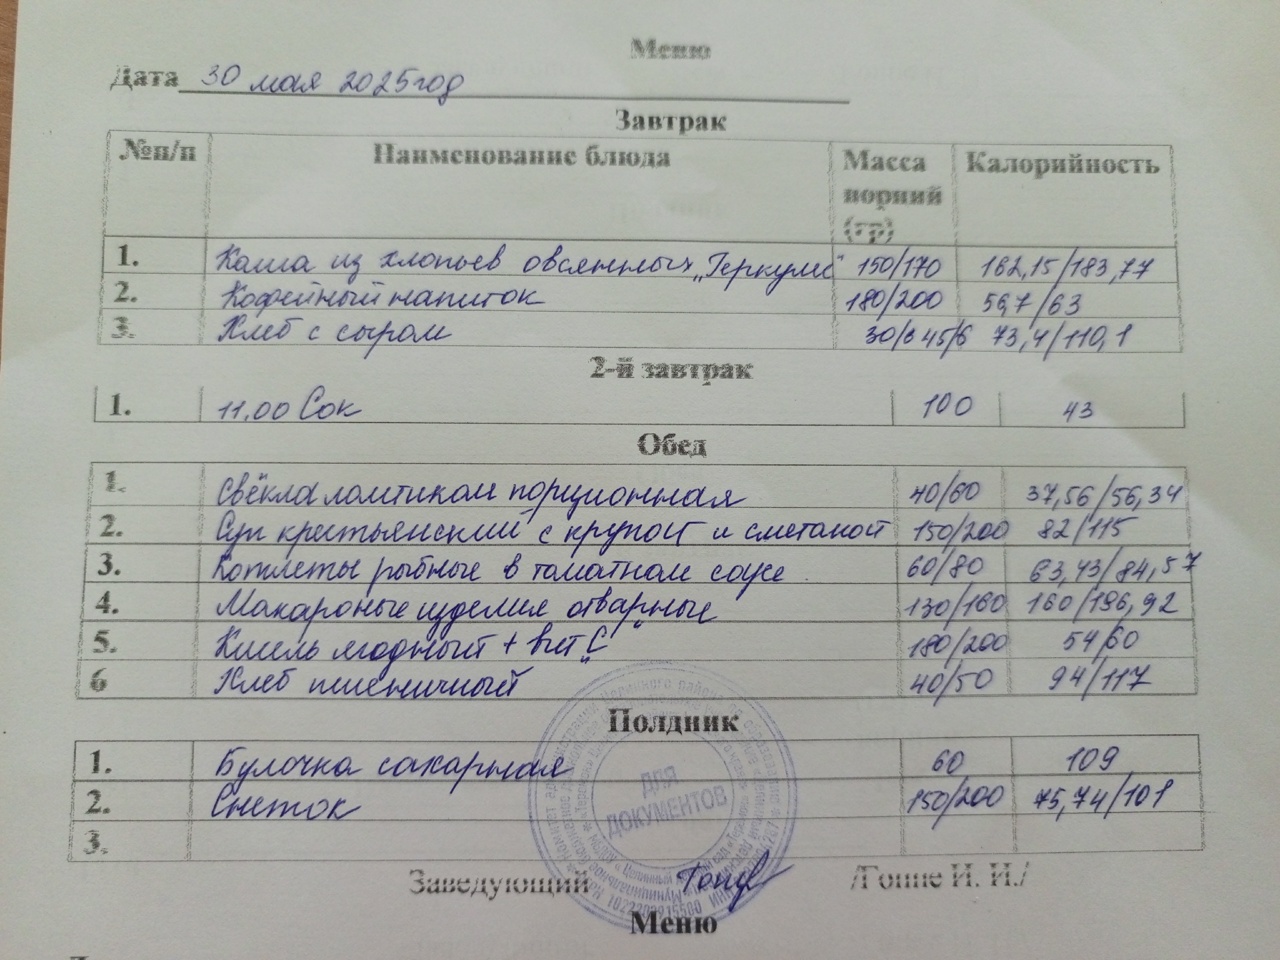 Меню
Дата 30 мая 2025год
Завтрак
№п/п Наименование блюда Масса порций (гр) Калорийность
1. Каша из хлопьев овсянных „Геркулес" 150/170 162,15/183,77
2. Кофейный напиток 180/200 56,7/63
3. Хлеб с сыром 30/6 45/6 73,4/110,1
2-й завтрак
1. 11.00 Сок 100 43
Обед
1. Свёкла ломтиком порционная 40/60 37,56/56,34
2. Суп крестьянский с крупой и сметаной 150/200 82/115
3. Котлеты рыбные в томатном соусе 60/80 63,43/84,57
4. Макароные изделия отварные 130/160 160/196,92
5. Кисель ягодный + вит „С" 180/200 54/60
6 Хлеб пшеничный 40/50 94/117
Полдник
1. Булочка сахарная 60 109
2. Снеток 150/200 75,74/101
3.
ДЛЯ
ДОКУМЕНТОВ
Заведующий /Гоппе И. И./
Меню